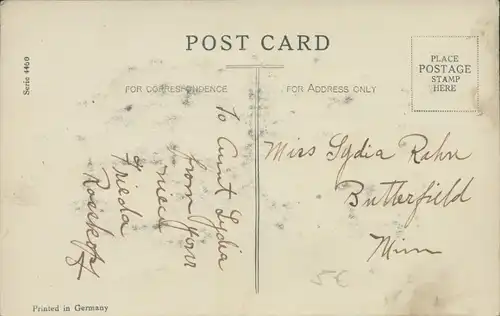 POST CARD
Serie 4460
FOR CORRESPONDENCE
FOR ADDRESS ONLY
PLACE
POSTAGE
STAMP
HERE
To Aunt Lydia
from your
niece
Frieda
Roiskopf
Miss Lydia Rahn
Butterfield
Minn
5¢
Printed in Germany